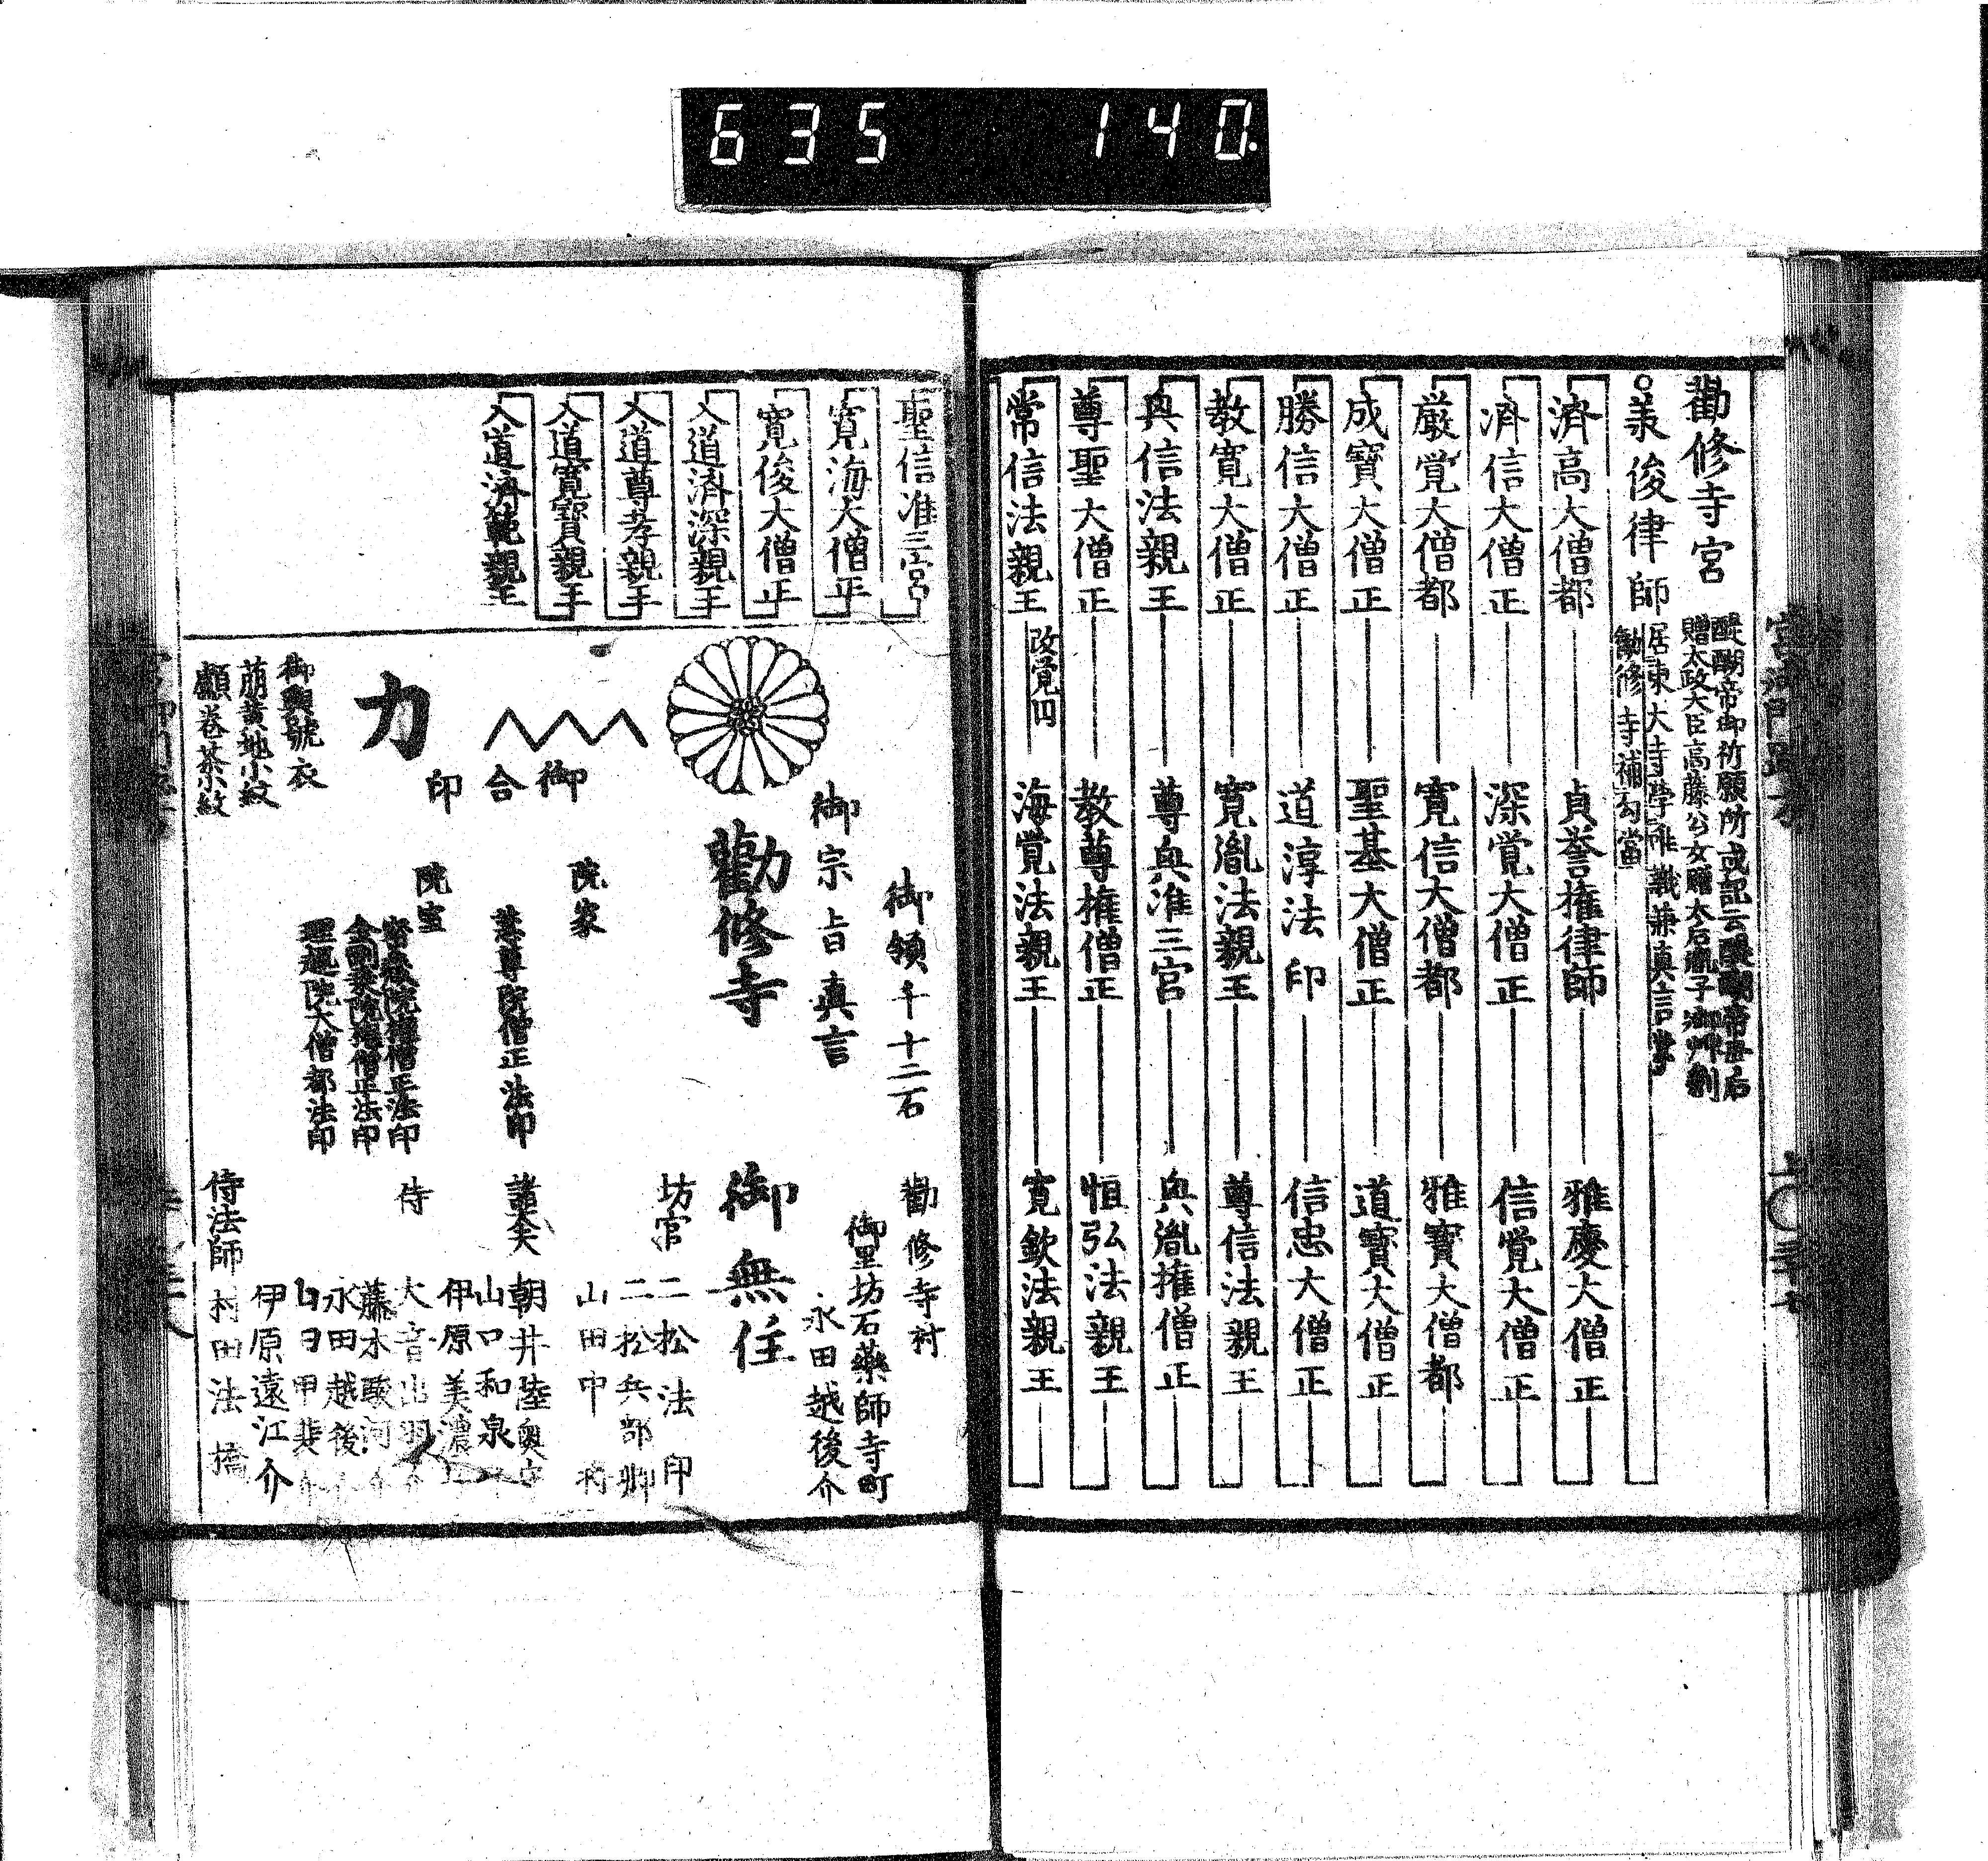 635 140.
勸修寺宮
醍醐帝御祈願所或記云醍醐帝母后
贈太政大臣高藤公女贈太后胤子御艸創
羕俊律師
居東大寺学唯識兼真言掌
勧修寺補勾當
済高大僧都
貞誉権律師
雅慶大僧正
済信大僧正
深覚大僧正
信覚大僧正
厳覚大僧都
寛信大僧都
雅寶大僧都
成寶大僧正
聖基大僧正
道寶大僧正
勝信大僧正
道淳法印
信忠大僧正
教寛大僧正
寛胤法親王
尊信法親王
興信法親王
尊興准三宮
興胤権僧正
尊聖大僧正
教尊権僧正
恒弘法親王
常信法親王
改覚円
海覚法親王
寛欽法親王
聖信准三宮
寛海大僧正
寛俊大僧正
入道済深親王
入道尊孝親王
入道寛寶親王
入道済範親王
御領千十二石
勸修寺村
御里坊石藥師寺町
永田越後介
御宗旨真言
勸修寺
御無住
坊官
二松法印
二松兵部卿
山田中将
御合印
力
院家
慈尊院僧正法印
諸大夫
朝井陸奥守
山口和泉
伊原美濃
院室
密厳院権僧正法印
金剛乗院権僧正法印
理趣院大僧都法印
侍
大音出羽介
藤木駿河介
永田越後介
山田甲斐介
伊原遠江介
侍法師
村田法橋
御輿號衣
萠黄地小紋
顱巻茶小紋